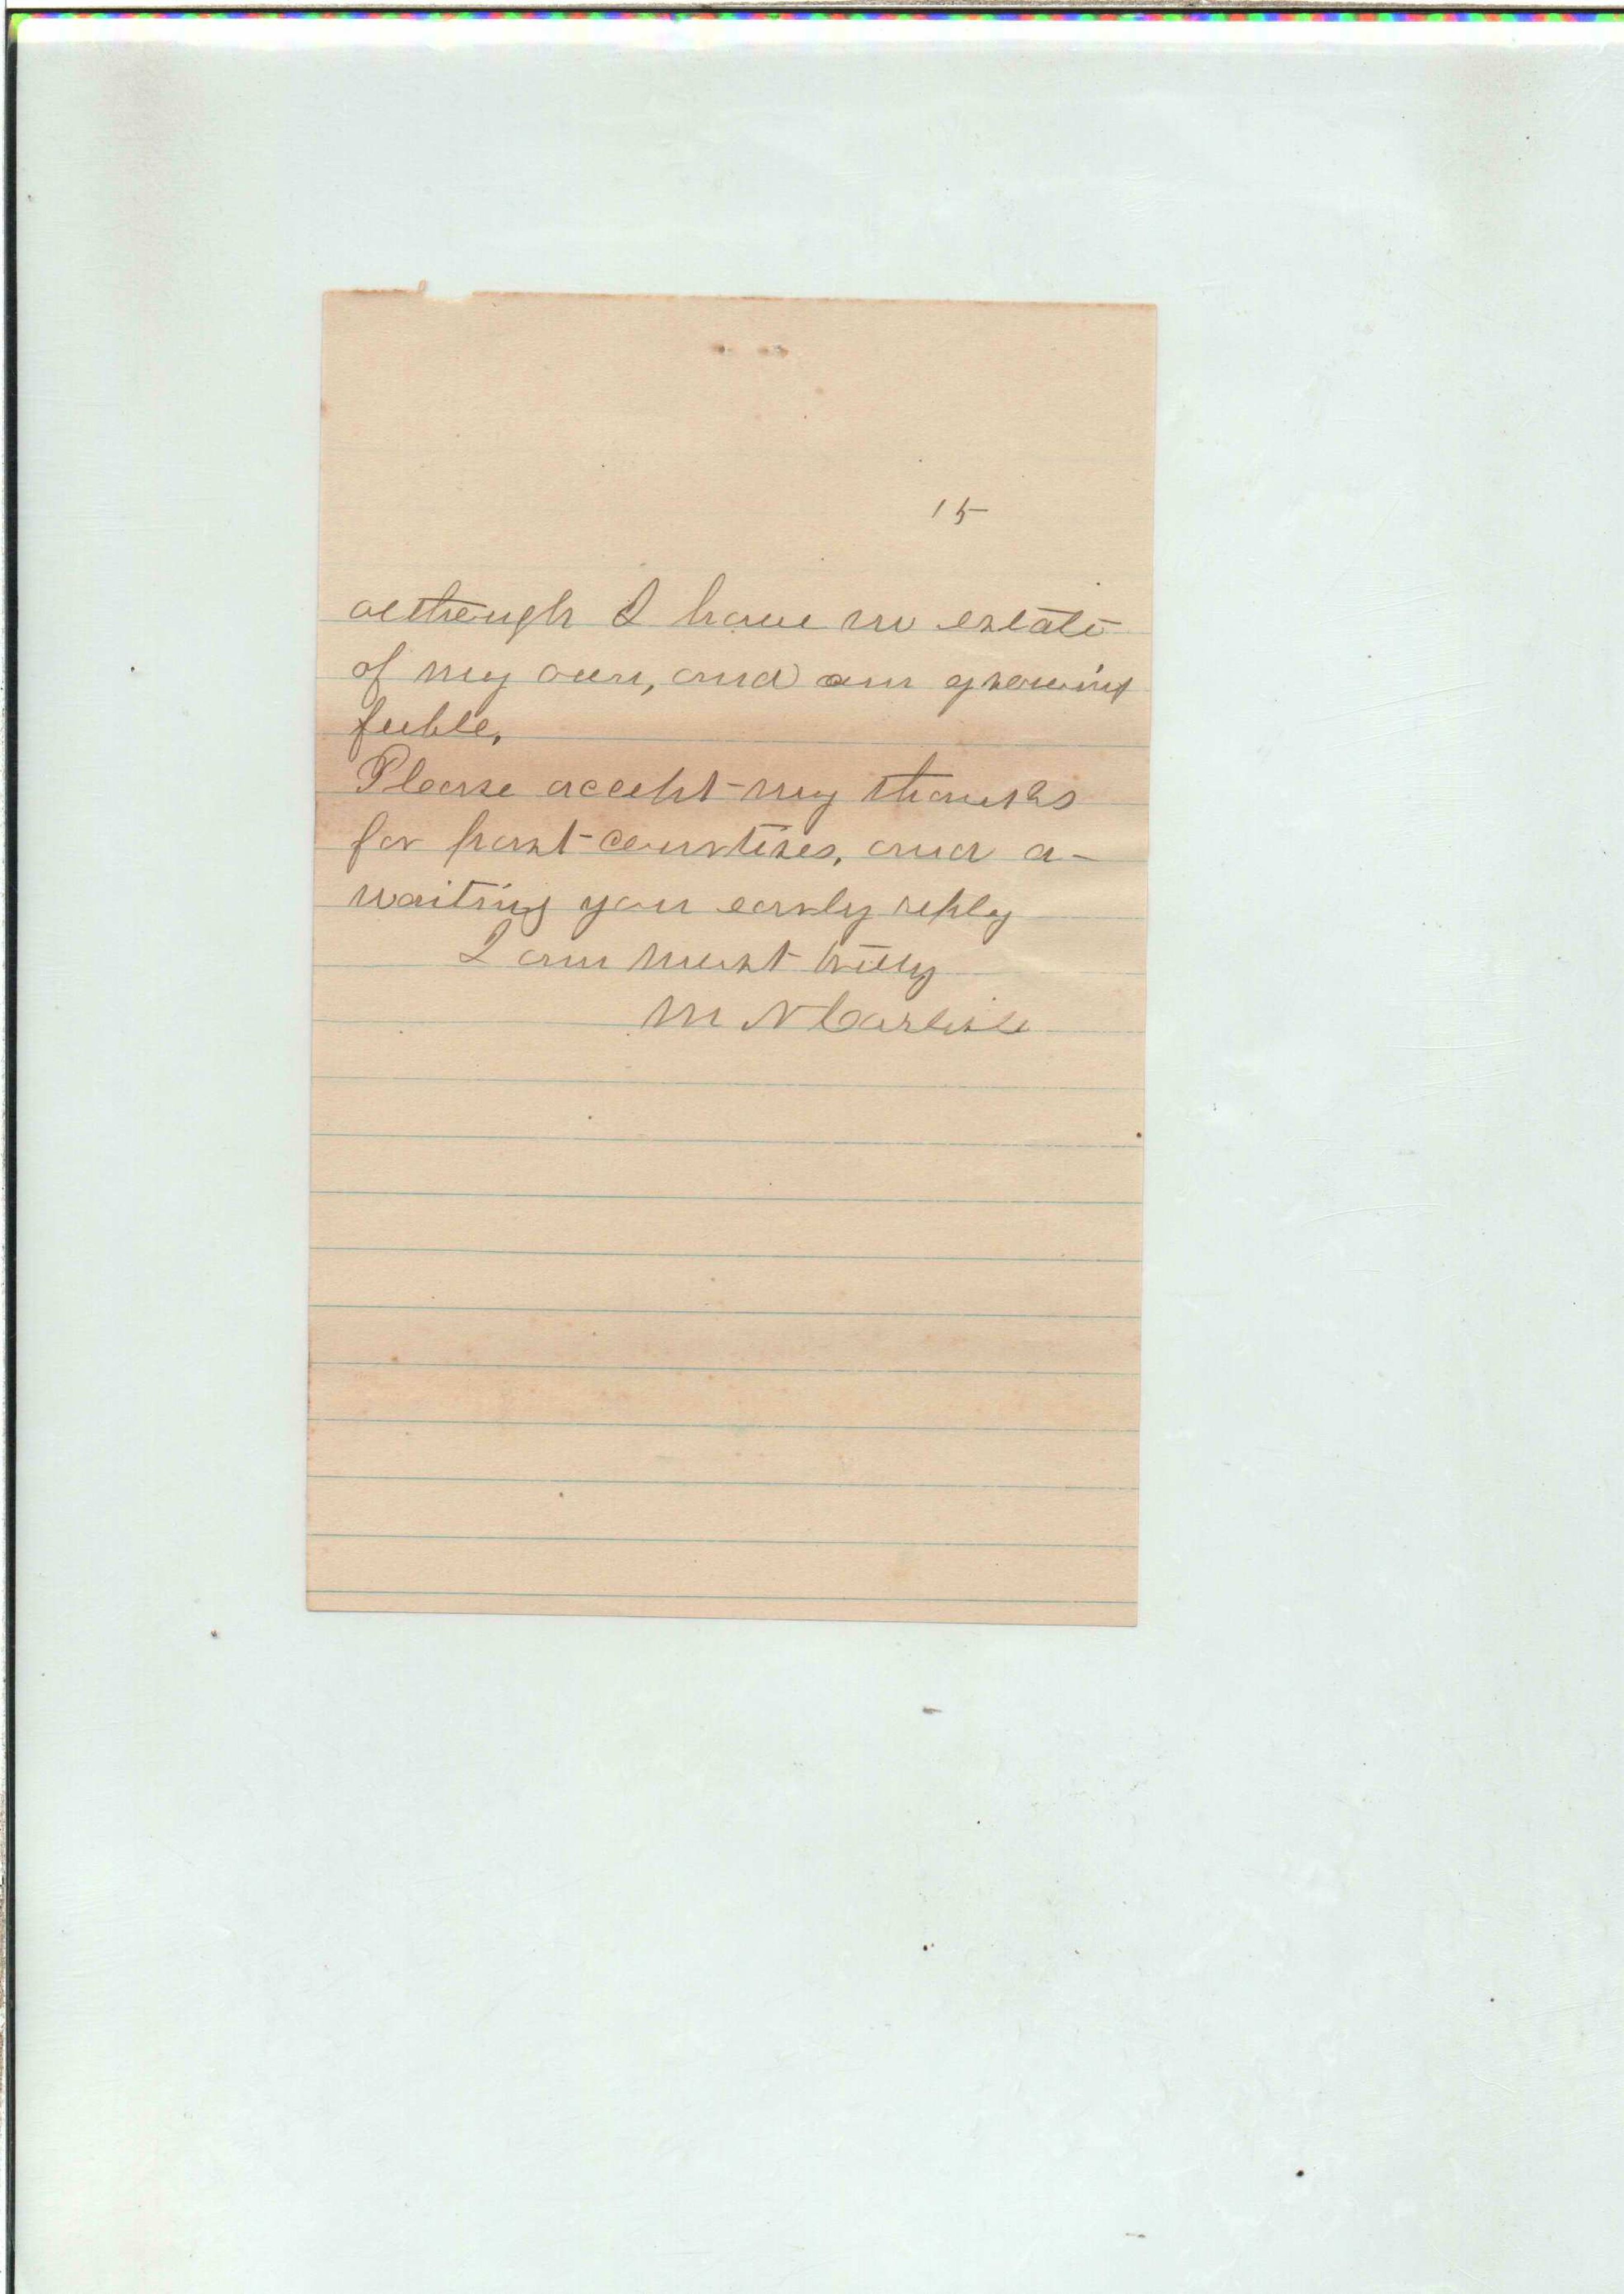 15
although I have no estate
of my own, and am growing
feeble,
Please accept my thanks
for past courtises, and a-
waiting you early reply
I am most truly
M N Carlisle